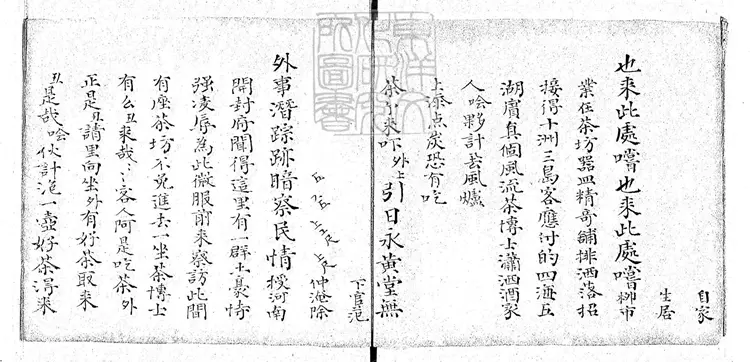 東洋文
化研究
所圖書
也來此處嚐也來此處嚐
自家
生居
柳市
業在茶坊器皿精奇鋪排洒落招
接得十洲三島客應付的四海五
湖賓真個風流茶博士瀟洒酒家
人唅夥計去風爐
上添点炭恐有吃
茶个來吓外上引日永黃堂無
外事潛踪跡暗察民情
下官范
仲淹除
授河南
開封府聞得這里有一群土豪恃
強凌辱為此微服前來察訪此間
有座茶坊不免進去一坐茶博士
有么丑來哉客人阿是吃茶外
正是丑請里向坐外有好茶取來
丑是哉唅伙計泡一壺好茶得來